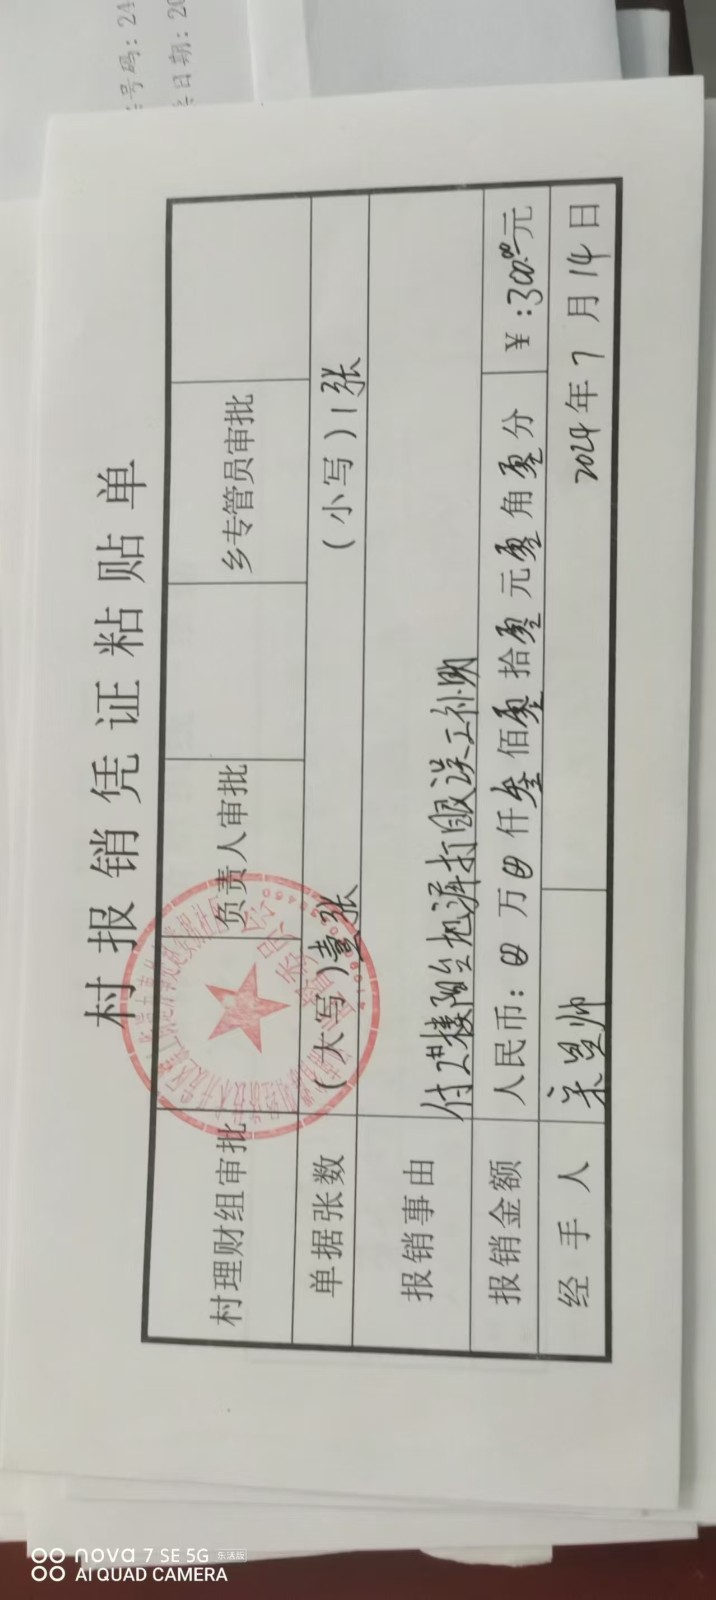 号码：24
日期：20
村报销凭证粘贴单
村理财组审批 负责人审批 乡专管员审批
单据张数 （大写）壹张 （小写）1张
报销事由 付2#楼阳台 打 误工补助
报销金额 人民币：⊗万⊗仟叁佰零拾零元零角零分 ¥：300.00元
经手人 2024年7月14日
nova 7 SE 5G 乐活版
AI QUAD CAMERA